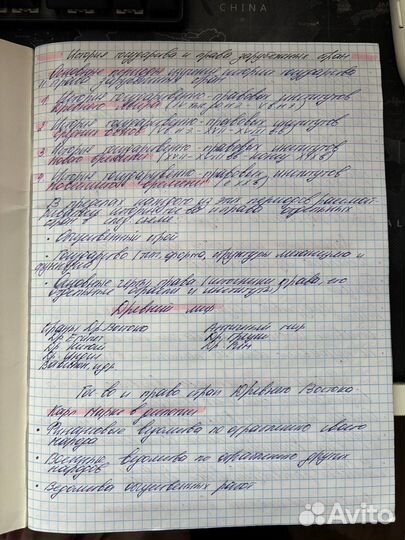 CHINA
История государства и права зарубежных стран
Основные периоды изучения истории государства
и права зарубежных стран
1. История государственно-правовых институтов
древнего мира
2. История государственно-правовых институтов
средних веков (V в н.э - XVII-XVIII вв)
3. История государственно-правовых институтов
нового времени (XVII-XVIII вв - конец XIX в)
4. История государственно-правовых институтов
новейшего времени (с XX в)
В пределах каждого из этих периодов
история гос-ва и права отдельных
стран
• Общественный строй
• Государство (тип, форма, структура механизма и
функции)
• Основные черты права (источники права, его
отдельные отрасли и институты)
Древний мир
Страны Др. Востока Античный мир
Др. Египет Др. Греция
Др. Китай Др. Рим
Др. Индия
Вавилон, и др.
Гос-во и право стран Древнего Востока
Карл Маркс выделил
• Финансовое ведомство по ограблению своего
народа
• Военное ведомство по ограблению других
народов
• Ведомство общественных работ
Avito